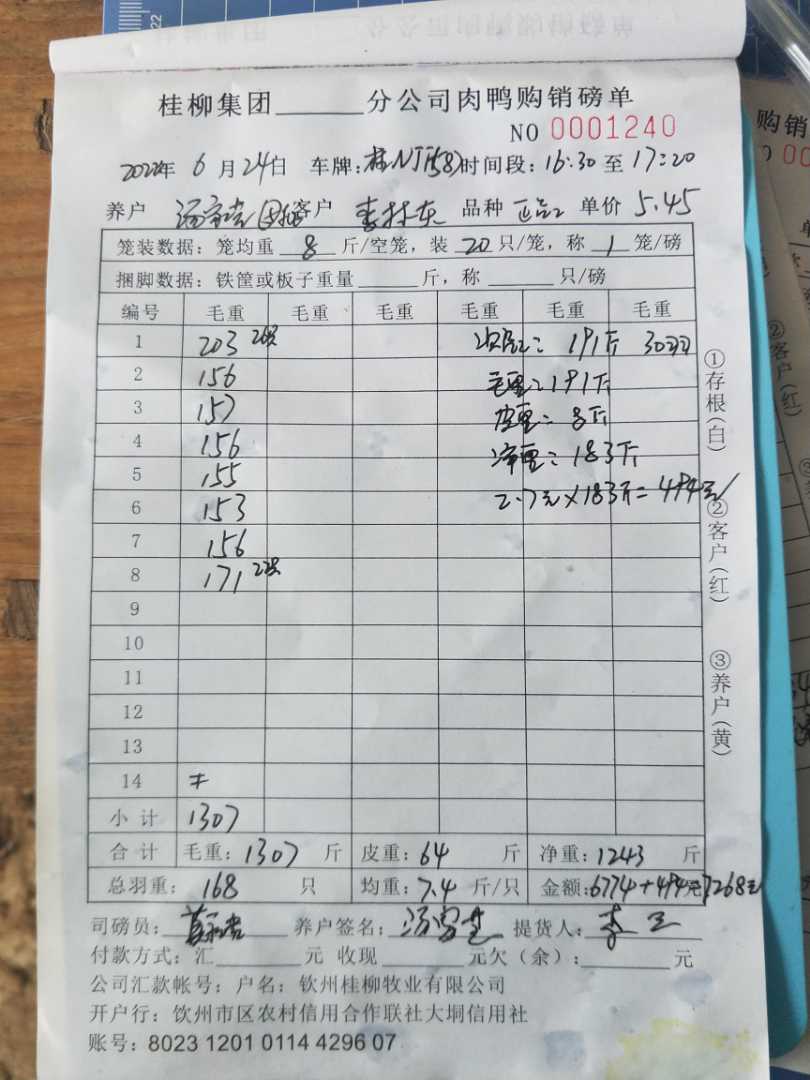 桂柳集团______分公司肉鸭购销磅单
NO 0001240
2022年 6 月 24日 车牌:桂N 时间段:16:30 至 17:20
养户 客户 李林东 品种 正品 单价 5.45
笼装数据:笼均重 8 斤/空笼,装 20 只/笼,称 1 笼/磅
捆脚数据:铁筐或板子重量______斤,称______只/磅
编号 毛重 毛重 毛重 毛重 毛重 毛重
1 203 191斤 30羽
2 156 毛重:191斤
3 157 皮重:8斤
4 156 净重:183斤
5 155 2.7元×183斤=494元
6 153
7 156
8 171
9
10
11
12
13
14
小 计 1307
合 计 毛重:1307 斤 皮重:64 斤 净重:1243 斤
总羽重: 168 只 均重:7.4 斤/只 金额:6774+494元7268元
司磅员: 养户签名: 提货人:李
付款方式:汇______元 收现______元欠(余):______元
公司汇款帐号:户名:钦州桂柳牧业有限公司
开户行:饮州市区农村信用合作联社大垌信用社
账号:8023 1201 0114 4296 07
①存根(白)
②客户(红)
③养户(黄)
购销
②客户(红)